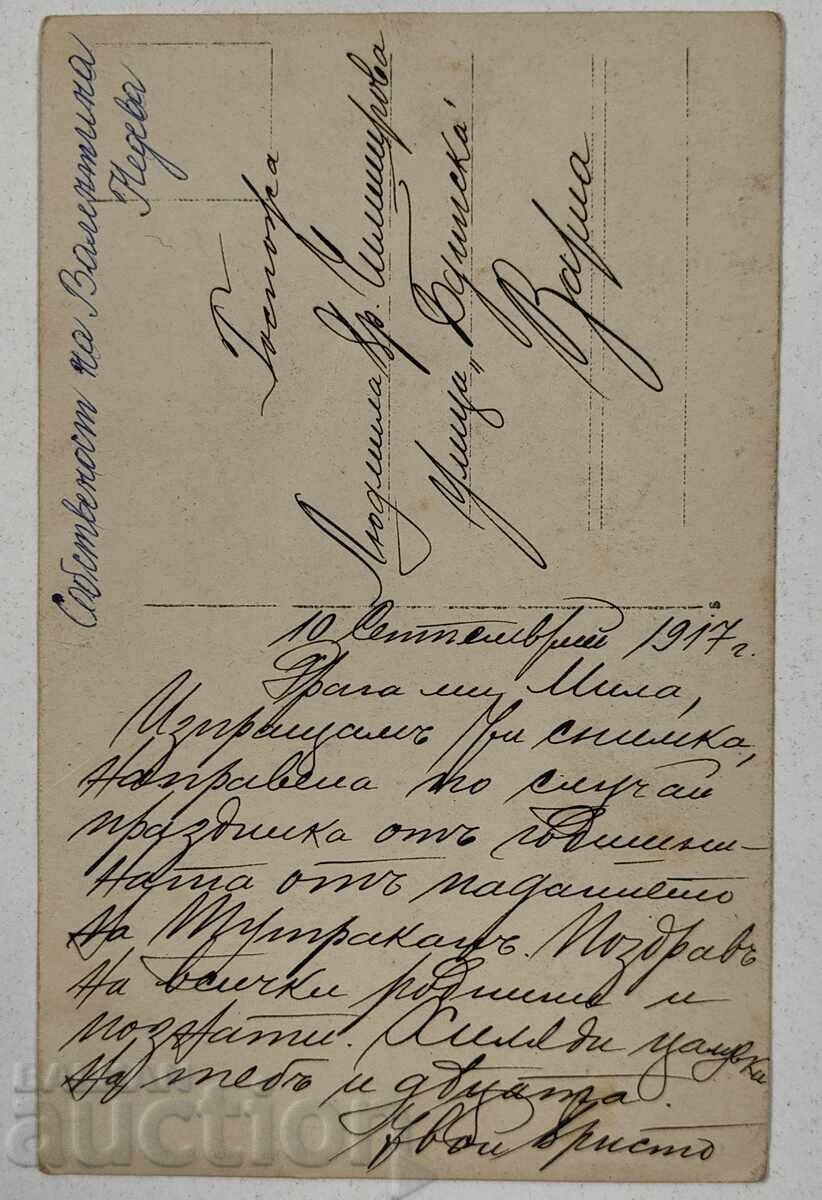 Собственост на Валентина
Недева
Госпожа
Людмила Хр.
Улица „Шипска“
Варна
10 Септемврий 1917 г.
Драга ми Мила,
Изпращамъ ти снимка,
направена по случай
праздника отъ годишни-
ната отъ паданието
на Тутраканъ. Поздравъ
на всички роднини и
познати. Хиляди целувки
на тебъ и децата.
Твой Христо